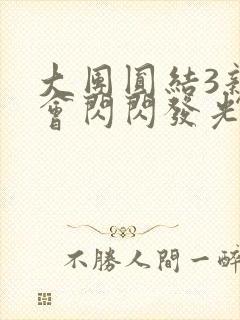 大団圓結3新
會閃閃發光
不勝人間一醉